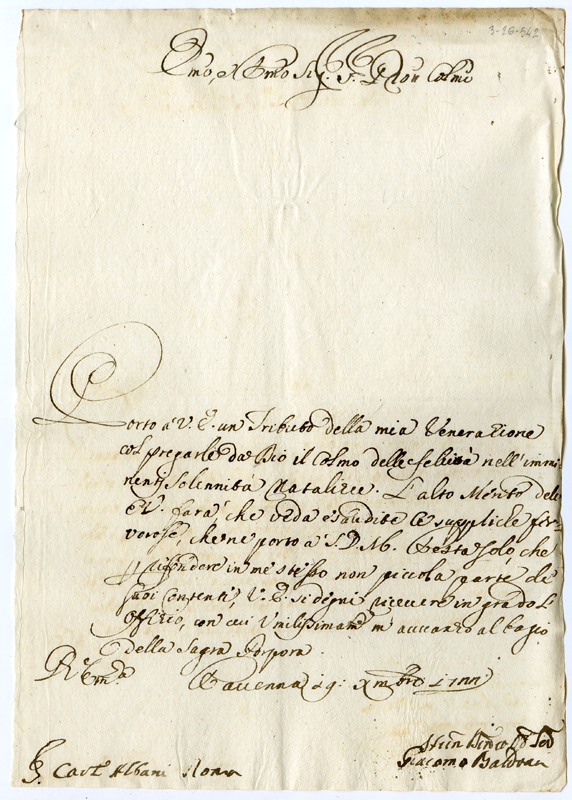 3-26-542
Em̃o e Rm̃o Sig.
Porto à V. E. un Tributo della mia Venerazione
col pregarle da Dio il Colmo delle felicità nell' immi-
nenti Solennità Natalizie. L'alto Merito dell'
E.V. farà che veda esaudite le suppliche fer-
vorose, che ne porto à S.D.M. Resta solo, che
in me stesso non piccola parte de
suoi Contenti, V.E. si degni ricevere in grado l'
Offizio, con cui Vmilissimam.te m'avvanzo al bagio
della Sagra Porpora.
Ravenna 19: Xmbre
Giacomo
Card. Albani Roma